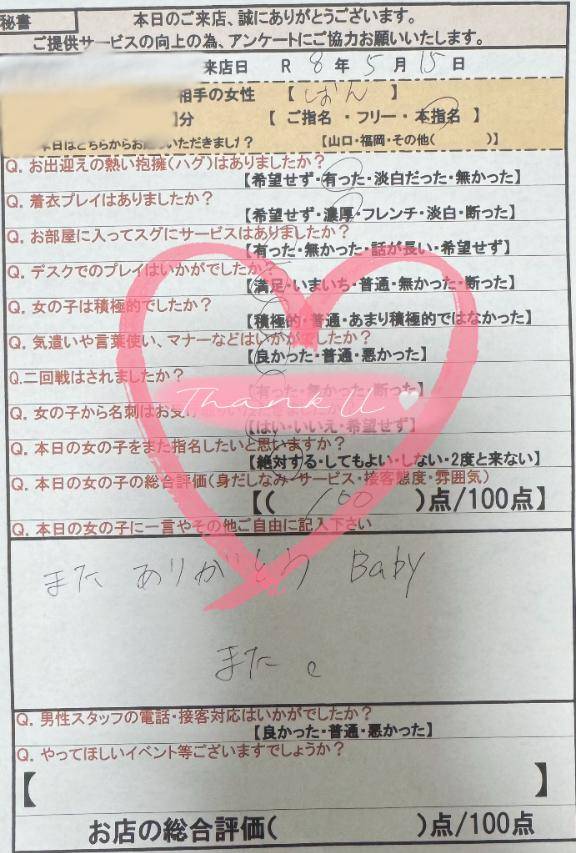 秘書
本日のご来店、誠にありがとうございます。
ご提供サービスの向上の為、アンケートにご協力お願いいたします。
来店日 R 8 年 5 月 15 日
相手の女性 【 しおん 】
】分 【 ご指名 ・ フリー ・ 本指名 】
本日はどちらからお越しいただきました？ 【山口・福岡・その他( )】
Q. お出迎えの熱い抱擁(ハグ)はありましたか？
【希望せず・有った・淡白だった・無かった】
Q. 着衣プレイはありましたか？
【希望せず・濃厚・フレンチ・淡白・断った】
Q. お部屋に入ってスグにサービスはありましたか？
【有った・無かった・話が長い・希望せず】
Q. デスクでのプレイはいかがでしたか？
【満足・いまいち・普通・無かった・断った】
Q. 女の子は積極的でしたか？
【積極的・普通・あまり積極的ではなかった】
Q. 気遣いや言葉使い、マナーなどはいかがでしたか？
【良かった・普通・悪かった】
Q.二回戦はされましたか？
【有った・無かった・断った】
Thank U
Q. 女の子から名刺はお受け
【はい・いいえ・希望せず】
Q. 本日の女の子をまた指名したいと思いますか？
【絶対する・してもよい・しない・2度と来ない】
Q. 本日の女の子の総合評価(身だしなみ・サービス・接客態度・雰囲気)
【( 100 )点/100点】
Q. 本日の女の子に一言やその他ご自由に記入下さい
また ありがとう Baby
また
Q. 男性スタッフの電話・接客対応はいかがでしたか？
【良かった・普通・悪かった】
Q. やってほしいイベント等ございますでしょうか？
【 】
お店の総合評価( )点/100点